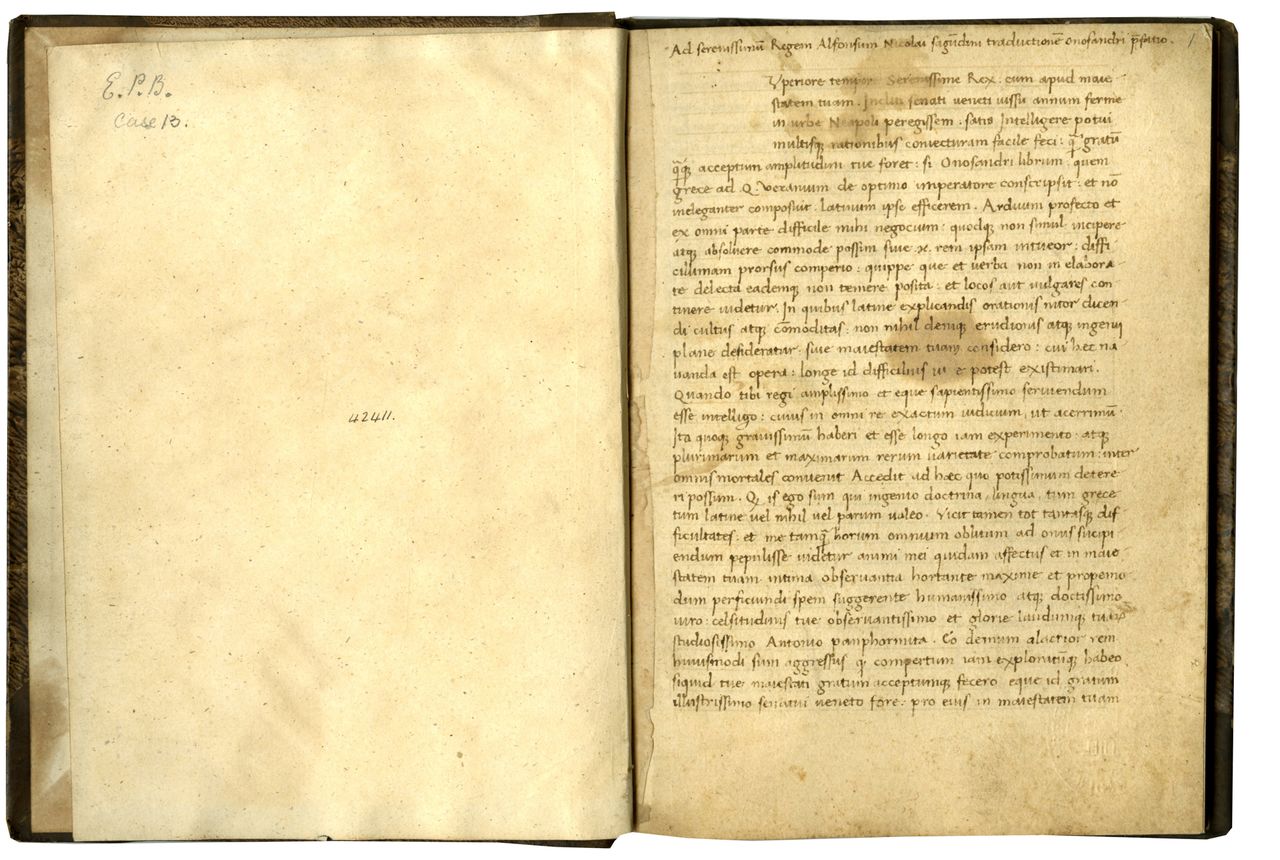 E. P. B.
Case 13.
42411.
1
Ad serenissimū Regem Alfonsum Nicolai sagūdini traductionē Onosandri p̄fatio.
Vperiore tempore Serenissime Rex: cum apud maie
statem tuam. Incliti senati veneti iussu annum ferme
in urbe Neapoli peregissem. satis Intelligere potui
multisq; rationibus coniecturam facile feci: gratū
acceptum amplitudini tue foret: si Onosandri librum: quem
grece ad Q. Veranium de optimo imperatore conscripsit: et nō
ineleganter composuit. latinum ipse efficerem. Arduum profecto et
ex omni parte difficile mihi negocium: quodq; non simul incipere
atq; absolvere commode possim siue .n. rem ipsam intueor: diffi
cillimam prorsus comperio: quippe que et verba non in elabora
te delecta eademq; non temere posita: et locos aut vulgares con
tinere uidetur. In quibus latine explicandis orationis nitor dicen
di cultus atq; cōmoditas: non nihil deniq; erudionis atq; ingenii
plane desideratur. siue maiestatem tuam considero: cui hec na
uanda est opera: longe id difficilius potest existimari.
Quando tibi regi amplissimo et eque sapientissimo seruiendum
esse intelligo: cuius in omni re exactum iudicium, ut acerrimū
Ita quoq; grauissimū haberi et esse longo iam experimento. atq;
plurimarum et maximarum rerum uarietate comprobatum: inter
omnis mortales conuenit Accedit ad hæc quo potissimum detere
ri possum. Q is ego sum qui ingenio doctrina, lingua, tum grece
tum latine uel nihil uel parum ualeo. Vicit tamen tot tantasq; dif
ficultates: et me tamq̄ horum omnium oblitum ad onus suscipi
endum pepulisse uidetur animi mei quidam affectus et in maie
statem tuam intima obseruantia hortante maxime et propemo
dum perficiundi spem suggerente humanissimo atq; doctissimo
uiro: celsitudinis tue obseruantissimo et glorie laudumq; tuarum
studiosissimo Antonio panphormita. Eo demum alacrior rem
huiusmodi sum aggressus q compertum iam exploratūq; habeo
siquid tue maiestati gratum acceptumq; fecero eque id gratum
illustrissimo senatui veneto fore. pro eius in maiestatem tuam